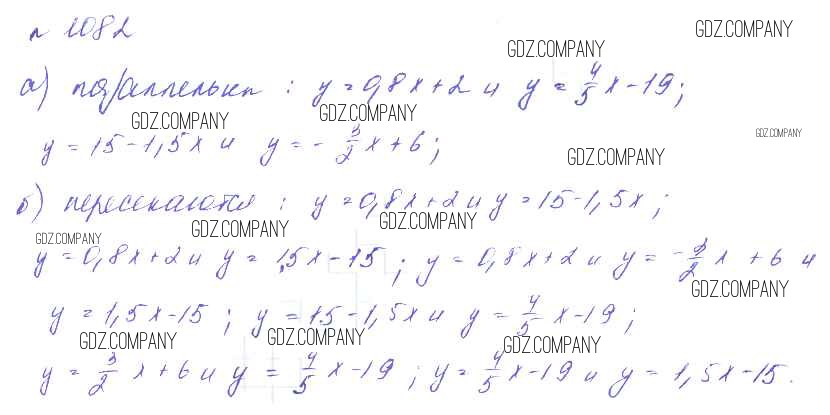 GDZ.COMPANY
№ 1082
GDZ.COMPANY
а) параллельны : y = 0,8x + 2 и y = 4/5 x - 19;
GDZ.COMPANY GDZ.COMPANY
GDZ.COMPANY
y = 15 - 1,5x и y = - 3/2 x + 6;
GDZ.COMPANY
б) пересекаются : y = 0,8x + 2 и y = 15 - 1,5x;
GDZ.COMPANY GDZ.COMPANY GDZ.COMPANY
y = 0,8x + 2 и y = 1,5x - 15; y = 0,8x + 2 и y = - 3/2 x + 6 и
GDZ.COMPANY
y = 1,5x - 15; y = 15 - 1,5x и y = 4/5 x - 19;
GDZ.COMPANY GDZ.COMPANY GDZ.COMPANY
y = 3/2 x + 6 и y = 4/5 x - 19; y = 4/5 x - 19 и y = 1,5x - 15.